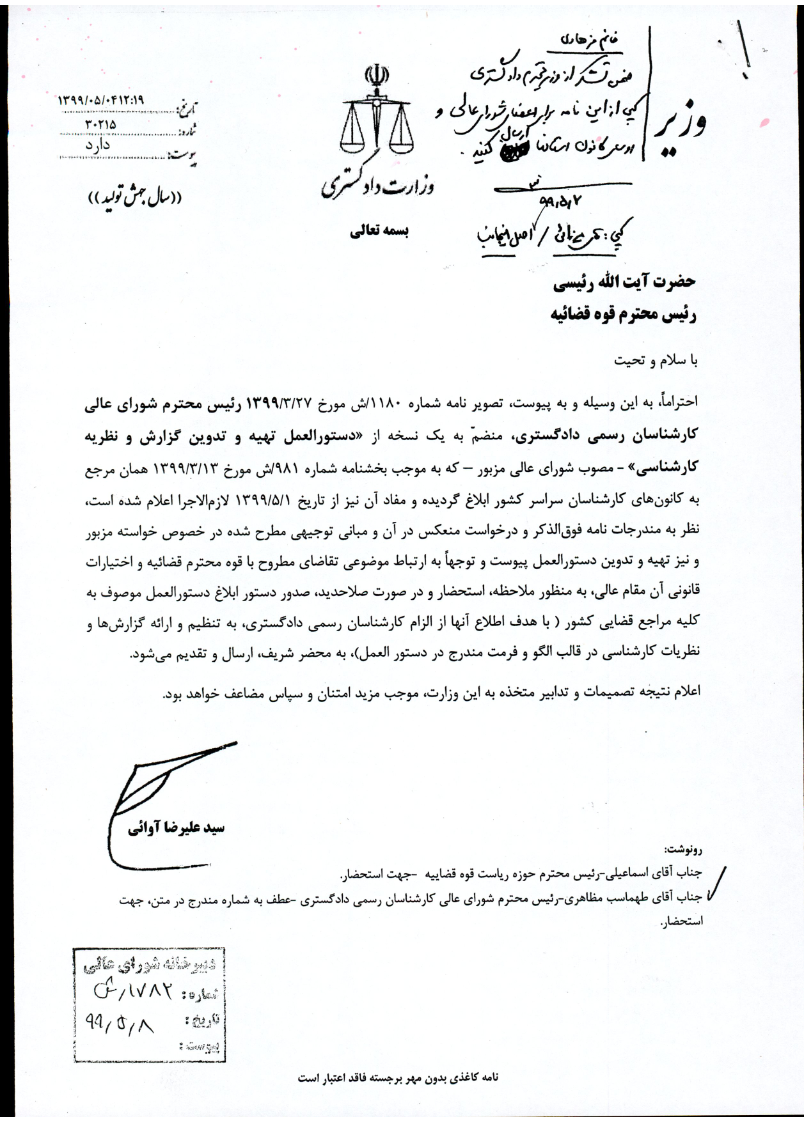 تاریخ: ۱۳۹۹/۰۵/۰۴۱۲:۱۹
شماره: ۳۰۲۱۵
پیوست: دارد
((سال جهش تولید))
وزارت دادگستری
بسمه تعالی
وزیر
ضمن تشکر از وزیر محترم دادگستری
کپی از این نامه برای اعضای شورای عالی و
کانون استانها ارسال کنید.
۹۹/۵/۷
حضرت آیت الله رئیسی
رئیس محترم قوه قضائیه
با سلام و تحیت
احتراماً، به این وسیله و به پیوست، تصویر نامه شماره ۱۱۸۰/ش مورخ ۱۳۹۹/۳/۲۷ رئیس محترم شورای عالی
کارشناسان رسمی دادگستری، منضمّ به یک نسخه از «دستورالعمل تهیه و تدوین گزارش و نظریه
کارشناسی» - مصوب شورای عالی مزبور – که به موجب بخشنامه شماره ۹۸۱/ش مورخ ۱۳۹۹/۳/۱۳ همان مرجع
به کانون‌های کارشناسان سراسر کشور ابلاغ گردیده و مفاد آن نیز از تاریخ ۱۳۹۹/۵/۱ لازم‌الاجرا اعلام شده است،
نظر به مندرجات نامه فوق‌الذکر و درخواست منعکس در آن و مبانی توجیهی مطرح شده در خصوص خواسته مزبور
و نیز تهیه و تدوین دستورالعمل پیوست و توجهاً به ارتباط موضوعی تقاضای مطروح با قوه محترم قضائیه و اختیارات
قانونی آن مقام عالی، به منظور ملاحظه، استحضار و در صورت صلاحدید، صدور دستور ابلاغ دستورالعمل موصوف به
کلیه مراجع قضایی کشور ( با هدف اطلاع آنها از الزام کارشناسان رسمی دادگستری، به تنظیم و ارائه گزارش‌ها و
نظریات کارشناسی در قالب الگو و فرمت مندرج در دستور العمل)، به محضر شریف، ارسال و تقدیم می‌شود.
اعلام نتیجه تصمیمات و تدابیر متخذه به این وزارت، موجب مزید امتنان و سپاس مضاعف خواهد بود.
سید علیرضا آوائی
رونوشت:
جناب آقای اسماعیلی-رئیس محترم حوزه ریاست قوه قضاییه -جهت استحضار.
جناب آقای طهماسب مظاهری-رئیس محترم شورای عالی کارشناسان رسمی دادگستری -عطف به شماره مندرج در متن، جهت
استحضار.
دبیرخانه شورای عالی
شماره: ۱۷۸۲/ش
تاریخ: ۹۹/۵/۸
پیوست:
نامه کاغذی بدون مهر برجسته فاقد اعتبار است